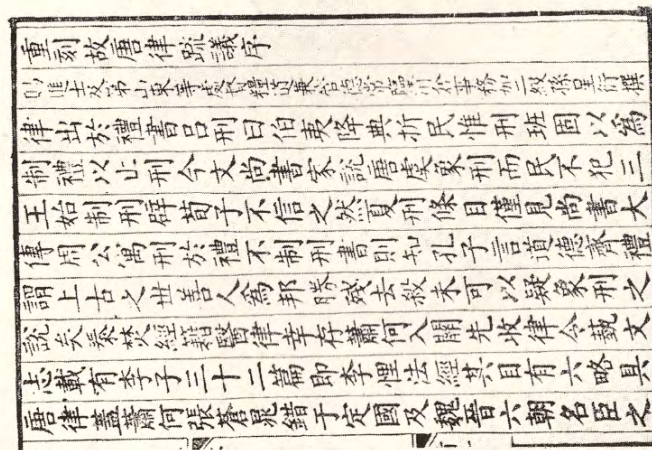 重刻故唐律疏議序
賜進士及第山東等處督糧道兼管德常臨清倉事務加二級孫星衍撰
律出於禮書呂刑曰伯夷降典折民惟刑班固以為
制禮以止刑今文尚書家說唐虞象刑而民不犯三
王始制刑辟荀子不信之然夏刑條目僅見尚書大
傳周公寓刑於禮不制刑書則知孔子言道德齊禮
謂上古之世善人為邦勝殘去殺未可以疑象刑之
說矣秦焚經籍醫律幸存蕭何入關先收律令藝文
志載有李子三十二篇即李悝法經其目有六略具
唐律蓋蕭何張蒼鼂錯于定國及魏晉六朝名臣之